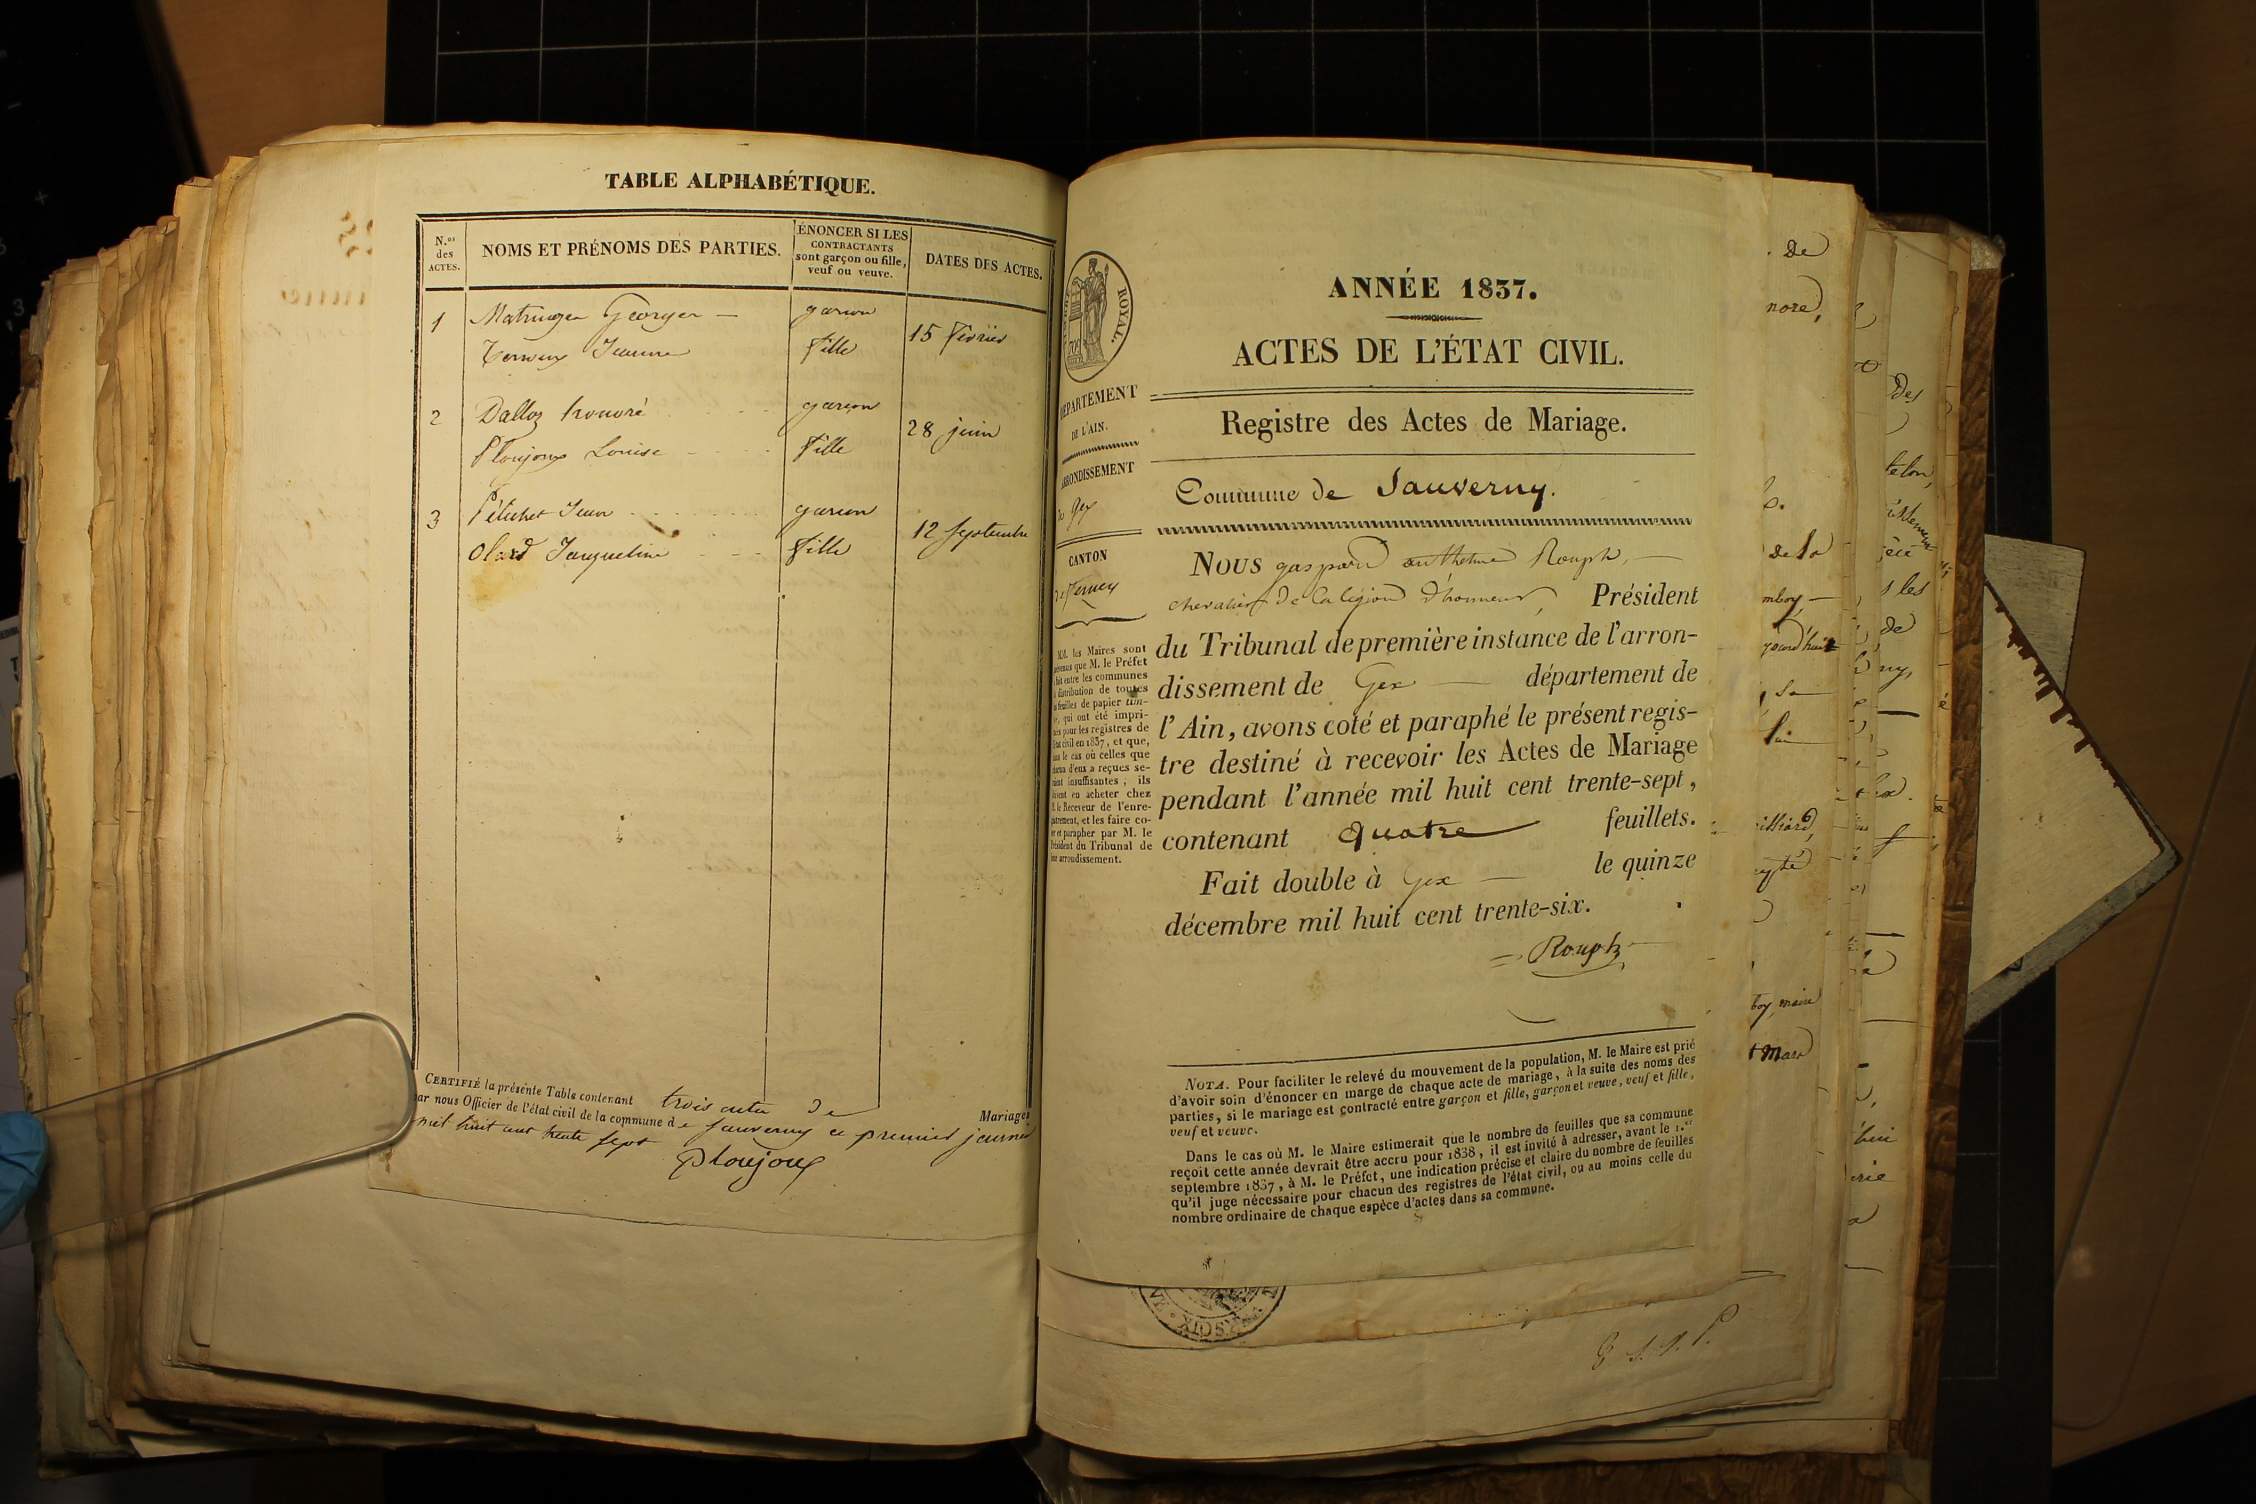 TABLE ALPHABÉTIQUE.
N.os des ACTES.
NOMS ET PRÉNOMS DES PARTIES.
ÉNONCER SI LES
CONTRACTANTS
sont garçon ou fille,
veuf ou veuve.
DATES DES ACTES.
1 Matringer Georges garçon
Jeanne fille
15 février
2 Dalloz honoré garçon
Ploujoux Louise fille
28 juin
3 Pétuhet Jean garçon
Jacqueline fille
12 septembre
CERTIFIÉ la présente Table contenant trois actes de Mariages
par nous Officier de l'état civil de la commune de Sauverny ce premier janvier
mil huit cent trente sept
Ploujoux
ROYAL.
DÉPARTEMENT
DE L'AIN.
ARRONDISSEMENT
de Gex
CANTON
de Ferney
MM. les Maires sont
prévenus que M. le Préfet
fait entre les communes
la distribution de toutes
les feuilles de papier tim-
bré, qui ont été impri-
mées pour les registres de
l'état civil en 1837, et que,
dans le cas où celles que
chacun d'eux a reçues se-
raient insuffisantes, ils
doivent en acheter chez
M. le Receveur de l'enre-
gistrement, et les faire co-
ter et parapher par M. le
Président du Tribunal de
leur arrondissement.
ANNÉE 1837.
ACTES DE L'ÉTAT CIVIL.
Registre des Actes de Mariage.
Commune de Sauverny.
NOUS gaspard anthelme Rouph,
chevalier de la légion d'honneur, Président
du Tribunal de première instance de l'arron-
dissement de Gex département de
l'Ain, avons coté et paraphé le présent regis-
tre destiné à recevoir les Actes de Mariage
pendant l'année mil huit cent trente-sept,
contenant quatre feuillets.
Fait double à Gex le quinze
décembre mil huit cent trente-six.
Rouph
NOTA. Pour faciliter le relevé du mouvement de la population, M. le Maire est prié
d'avoir soin d'énoncer en marge de chaque acte de mariage, à la suite des noms des
parties, si le mariage est contracté entre garçon et fille, garçon et veuve, veuf et fille,
veuf et veuve.
Dans le cas où M. le Maire estimerait que le nombre de feuilles que sa commune
reçoit cette année devrait être accru pour 1838, il est invité à adresser, avant le 1.er
septembre 1837, à M. le Préfet, une indication précise et claire du nombre de feuilles
qu'il juge nécessaire pour chacun des registres de l'état civil, ou au moins celle du
nombre ordinaire de chaque espèce d'actes dans sa commune.